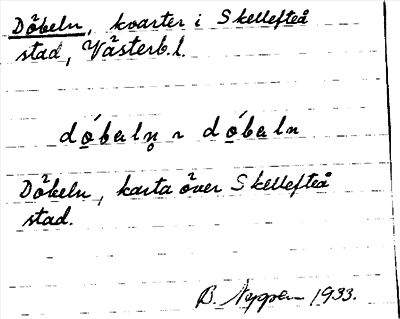 Döbeln, kvarter i Skellefteå
stad, Västerb.l.
dó̱bəln̥ ~ dó̱bəln
Döbeln, karta över Skellefteå
stad.
B. 1933.